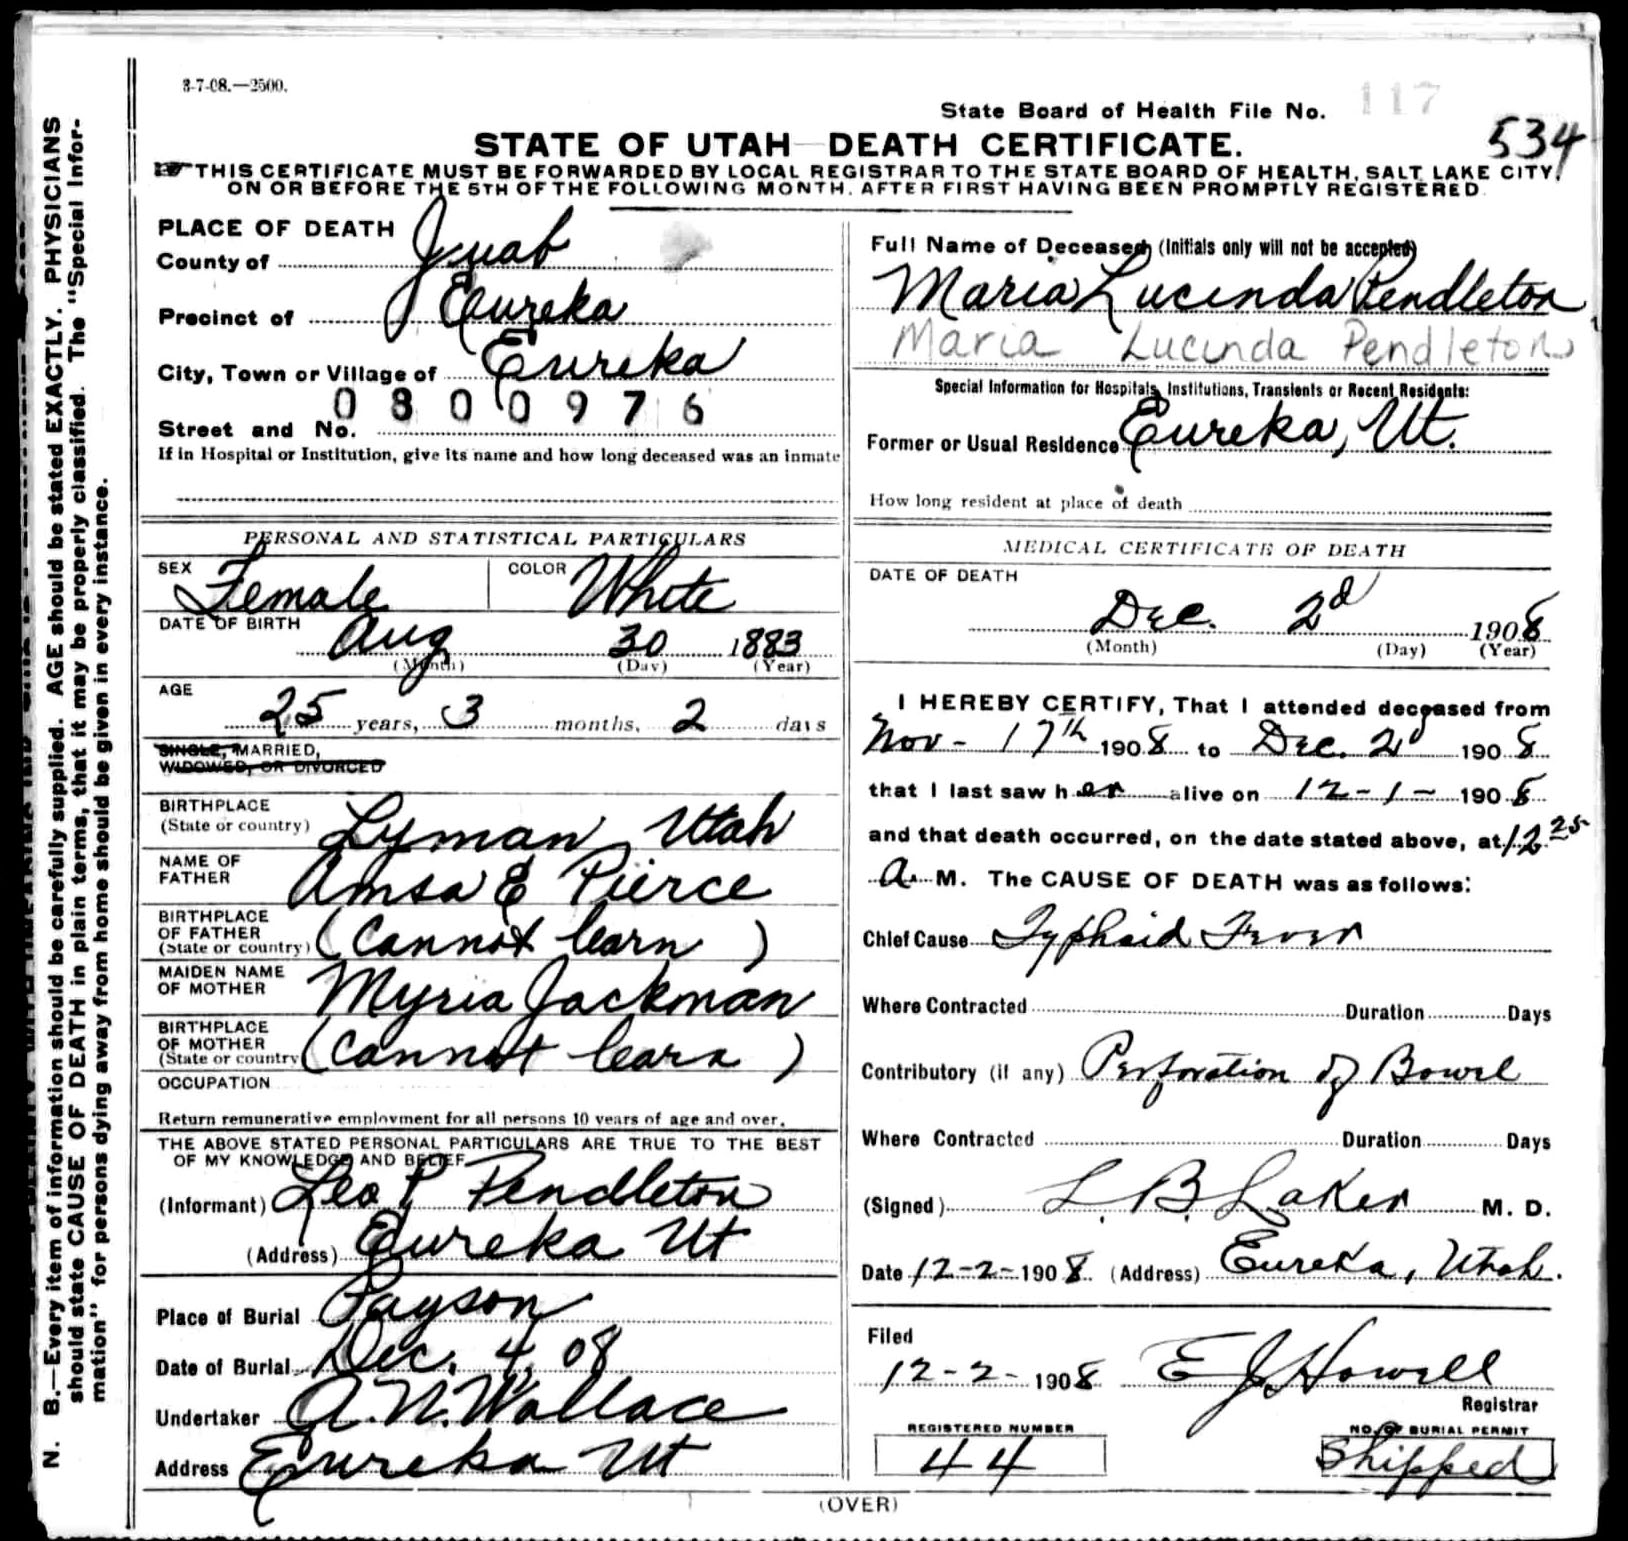 3-7-08.—2500.
State Board of Health File No. 117
534
STATE OF UTAH—DEATH CERTIFICATE.
THIS CERTIFICATE MUST BE FORWARDED BY LOCAL REGISTRAR TO THE STATE BOARD OF HEALTH, SALT LAKE CITY,
ON OR BEFORE THE 5TH OF THE FOLLOWING MONTH, AFTER FIRST HAVING BEEN PROMPTLY REGISTERED
PLACE OF DEATH
County of Juab
Precinct of Eureka
City, Town or Village of Eureka
0800976
Street and No.
If in Hospital or Institution, give its name and how long deceased was an inmate
PERSONAL AND STATISTICAL PARTICULARS
SEX Female COLOR White
DATE OF BIRTH Aug 30 1883
(Month) (Day) (Year)
AGE
25 years, 3 months, 2 days
SINGLE, MARRIED,
WIDOWED, OR DIVORCED
BIRTHPLACE
(State or country) Lyman, Utah
NAME OF
FATHER Amsa E Pierce
BIRTHPLACE
OF FATHER
(State or country) (Cannot learn)
MAIDEN NAME
OF MOTHER Myria Jackman
BIRTHPLACE
OF MOTHER
(State or country (Cannot learn)
OCCUPATION
Return remunerative employment for all persons 10 years of age and over.
THE ABOVE STATED PERSONAL PARTICULARS ARE TRUE TO THE BEST
OF MY KNOWLEDGE AND BELIEF
(Informant) Leo P Pendleton
(Address) Eureka Ut
Place of Burial Payson
Date of Burial Dec. 4, 08
Undertaker A. N. Wallace
Address Eureka Ut
Full Name of Deceased (Initials only will not be accepted)
Maria Lucinda Pendleton
Maria Lucinda Pendleton
Special Information for Hospitals, Institutions, Transients or Recent Residents:
Former or Usual Residence Eureka, Ut.
How long resident at place of death
MEDICAL CERTIFICATE OF DEATH
DATE OF DEATH
Dec. 2d 1908
(Month) (Day) (Year)
I HEREBY CERTIFY, That I attended deceased from
Nov - 17th 1908 to Dec. 2d 1908
that I last saw her alive on 12-1- 1908
and that death occurred, on the date stated above, at 12 25
A. M. The CAUSE OF DEATH was as follows:
Chief Cause Typhoid Fever
Where Contracted Duration Days
Contributory (if any) Perforation of Bowel
Where Contracted Duration Days
(Signed) L. B. Laker M. D.
Date 12-2-1908 (Address) Eureka, Utah.
Filed
12-2-1908 E J Howell
Registrar
REGISTERED NUMBER
44
NO. OF BURIAL PERMIT
Shipped
(OVER)
N. B.—Every item of information should be carefully supplied. AGE should be stated EXACTLY. PHYSICIANS
should state CAUSE OF DEATH in plain terms, that it may be properly classified. The "Special Infor-
mation" for persons dying away from home should be given in every instance.